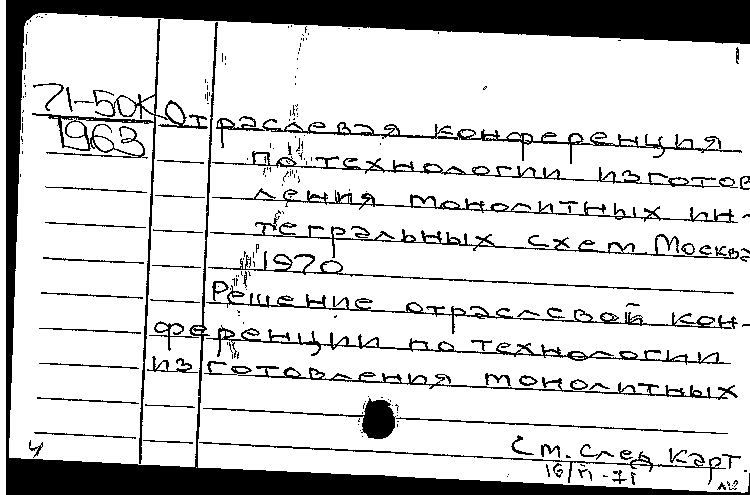 71-50К Отраслевая конференция
1963
по технологии изготов
ления монолитных ин-
тегральных схем Москва
1970
Решение отраслевой кон-
ференции по технологии
изготовления монолитных
См. след карт.
16/II-71
Ч